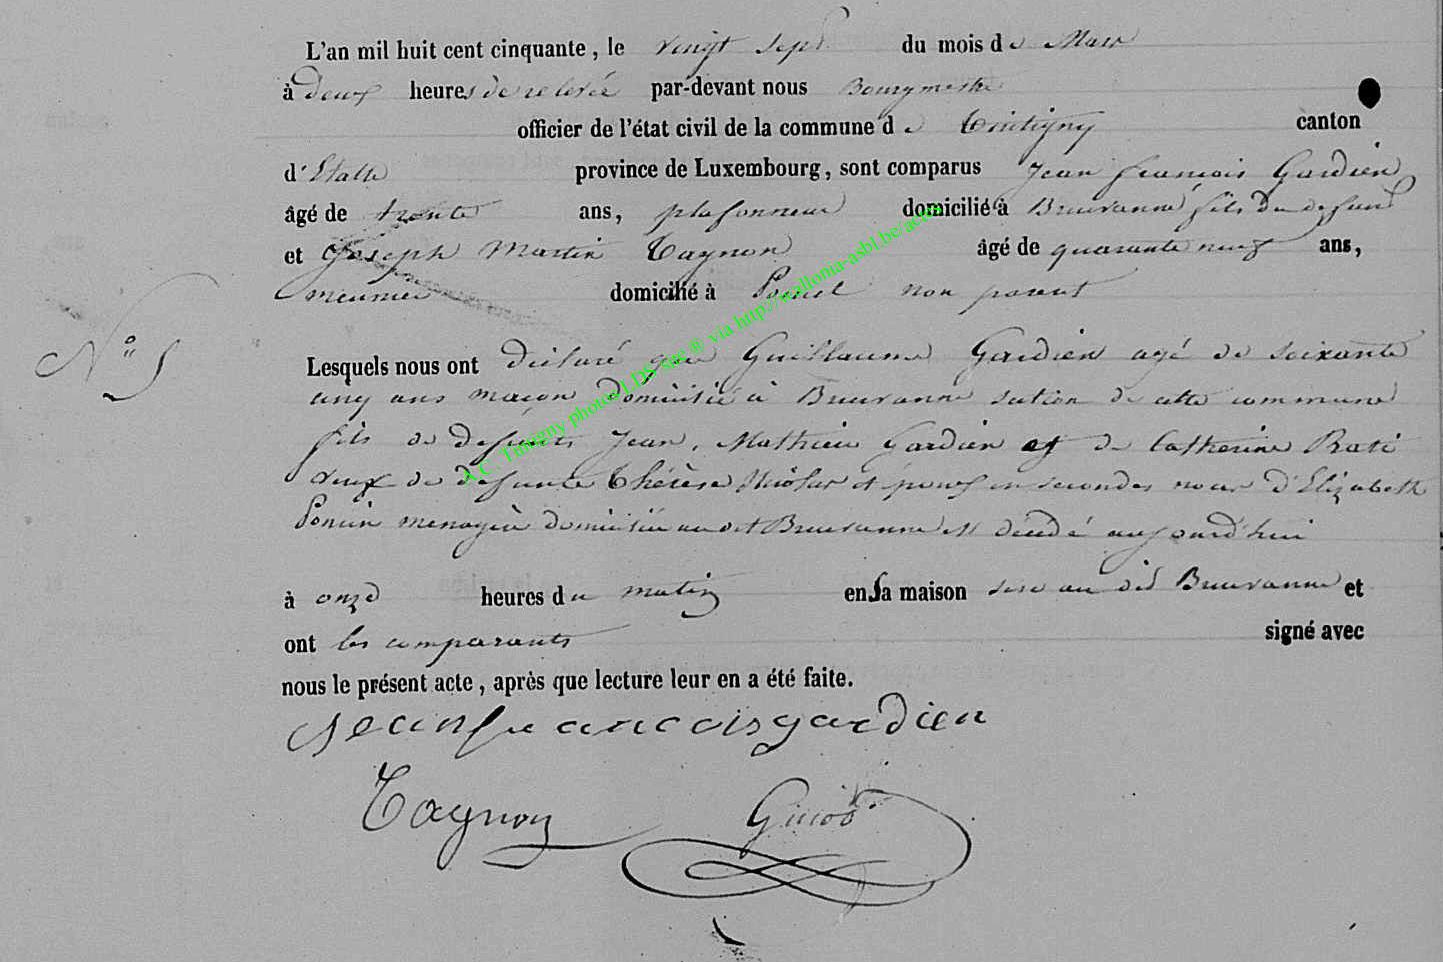 L'an mil huit cent cinquante, le vingt sept du mois de Mars
à deux heures de relevée par-devant nous Bourgmestre
officier de l'état civil de la commune de Tintigny canton
d'Etalle province de Luxembourg, sont comparus Jean françois Gardien
âgé de trente ans, plafonneur domicilié à Breuvanne fils du defunt
et Joseph Martin Tagnon âgé de quarante neuf ans,
meunier domicilié à Poncel non parent
N° 5
Lesquels nous ont déclaré que Guillaume Gardien agé de soixante
cinq ans maçon domicilié à Breuvanne section de cette commune
fils de defunts Jean, Mathieu Gardien et de Catherine Rati
veuf de defunte Thérèse Nicolas et époux en secondes noces d'Elizabeth
Poncin menagère domiciliée au dit Breuvanne est décédé aujourd'hui
à onze heures du matin en sa maison sise au dit Breuvanne et
ont les comparants signé avec
nous le présent acte, après que lecture leur en a été faite.
Jean francois gardien
Tagnon
A.C. Tintigny photos LDS site ® via http://wallonia-asbl.be/actes